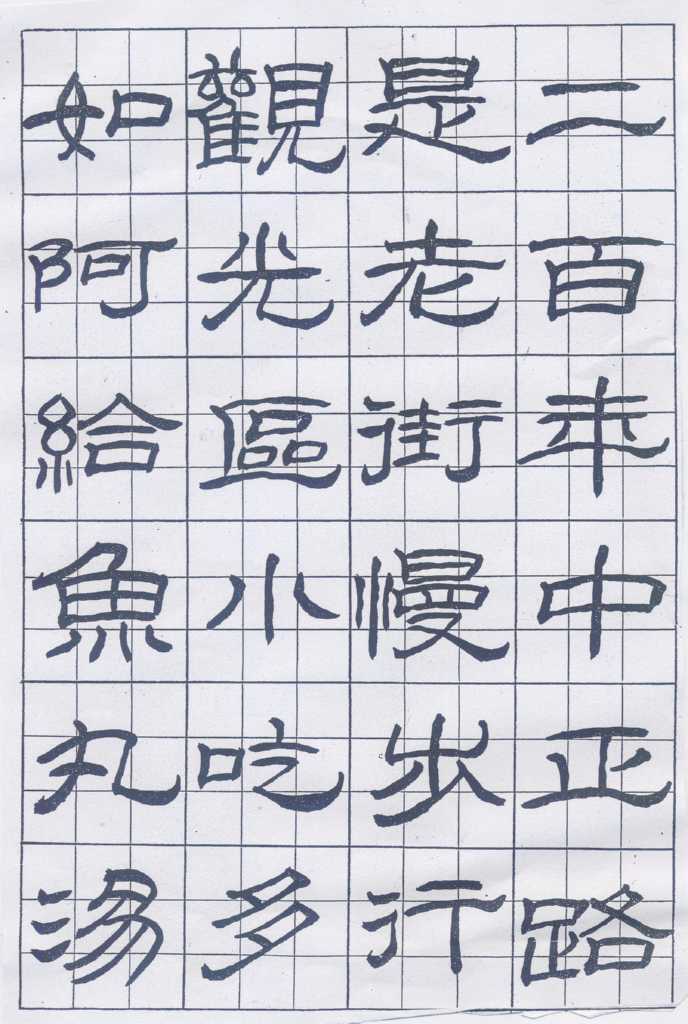 二百年中正路
是老街慢步行
觀光區小吃多
如阿給魚丸湯